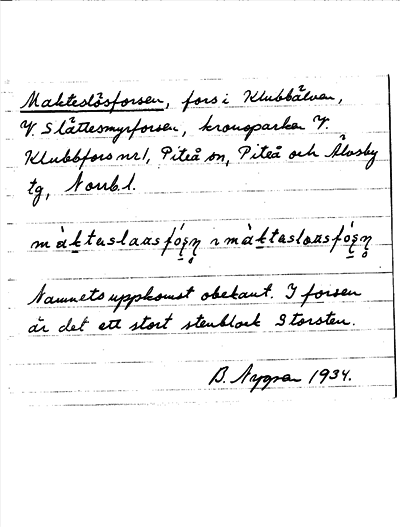 Makteslösforsen, fors i Klubbälven,
V. Slättesmyrforsen, kronoparken V.
Klubbfors nr 1, Piteå sn, Piteå och Älvsby
tg, Norrb. l.
Namnets uppkomst obekant. I forsen
är det ett stort stenblock Storsten.
B. Nygren 1934.